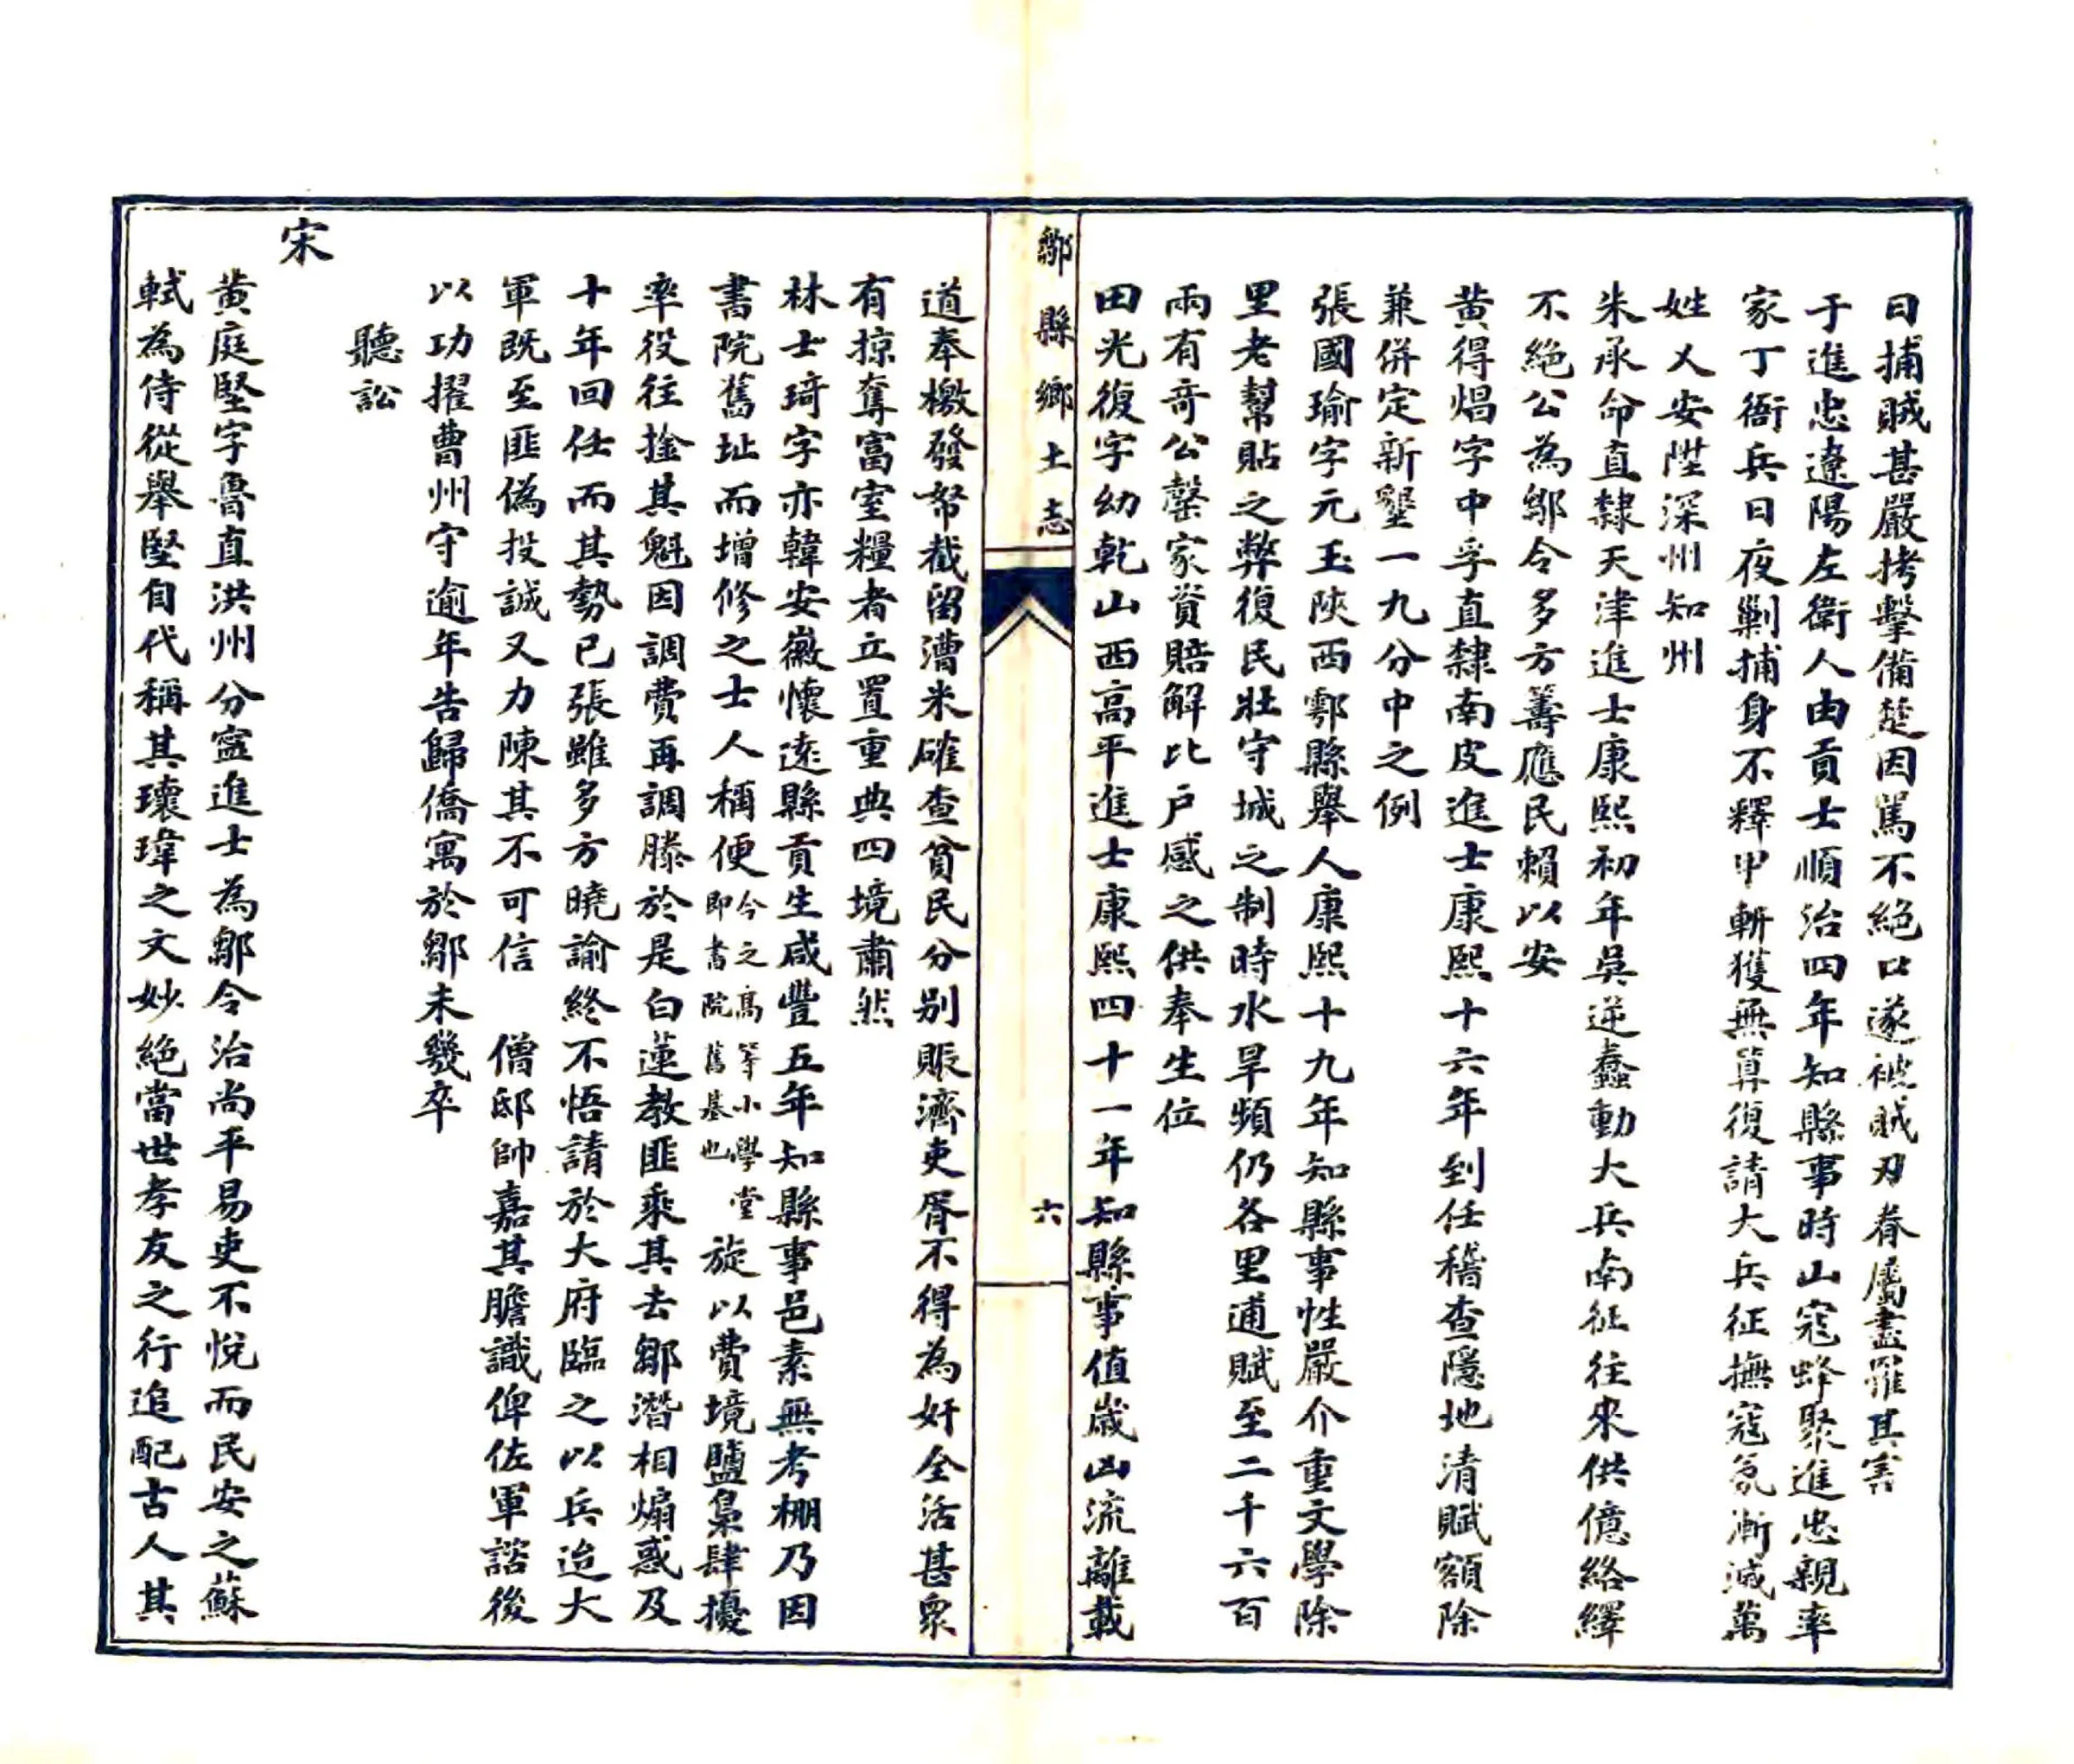 日捕賊甚嚴拷擊備楚因罵不絕口遂被賊刃眷屬盡罹其害
于進忠遼陽左衛人由貢士順治四年知縣事時山寇蜂聚進忠親率
家丁衙兵日夜剿捕身不釋甲斬獲無算復請大兵征撫寇氛漸滅萬
姓乂安陞深州知州
朱承命直隸天津進士康熙初年吳逆蠢動大兵南征往來供億絡繹
不絕公為鄒令多方籌應民賴以安
黃得焻字中孚直隸南皮進士康熙十六年到任稽查隱地清賦額除
兼併定新墾一九分中之例
張國瑜字元玉陝西鄠縣舉人康熙十九年知縣事性嚴介重文學除
里老幫貼之弊復民壯守城之制時水旱頻仍各里逋賦至二千六百
兩有奇公罄家資賠解比户感之供奉生位
田光復字幼乾山西高平進士康熙四十一年知縣事值歲凶流離載
鄒縣鄉土志
六
道奉檄發帑截留漕米確查貧民分别賑濟吏胥不得為奸全活甚衆
有掠奪富室糧者立置重典四境肅然
林士琦字亦韓安徽懷遠縣貢生咸豐五年知縣事邑素無考棚乃因
書院舊址而增修之士人稱便今之高等小學堂即書院舊基也旋以費境鹽梟肆擾
率役往捦其魁因調費再調滕於是白蓮教匪乘其去鄒潛相煽惑及
十年回任而其勢已張雖多方曉諭終不悟請於大府臨之以兵迨大
軍既至匪偽投誠又力陳其不可信　僧邸帥嘉其膽識俾佐軍諮後
以功擢曹州守逾年告歸僑寓於鄒未幾卒
聽訟
宋
黃庭堅字魯直洪州分寧進士為鄒令治尚平易吏不悅而民安之蘇
軾為侍從舉堅自代稱其瓌瑋之文妙絕當世孝友之行追配古人其